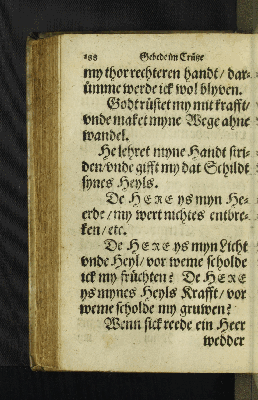 188 Gebede im Crütze
my thor rechteren handt / dar-
ümme werde ick wol blyven.
Godt rüstet my mit krafft /
vnde maket myne Wege ahne
wandel.
He lehret myne Handt stri-
den / vnde gifft my dat Schildt
synes Heyls.
De HERE ys myn He-
erde / my wert nichtes entbre-
ken / etc.
De HERE ys myn Licht
vnde Heyl / vor weme scholde
ick my früchten? De HERE
ys mynes Heyls Krafft / vor
weme scholde my gruwen?
Wenn sick reede ein Heer
wedder